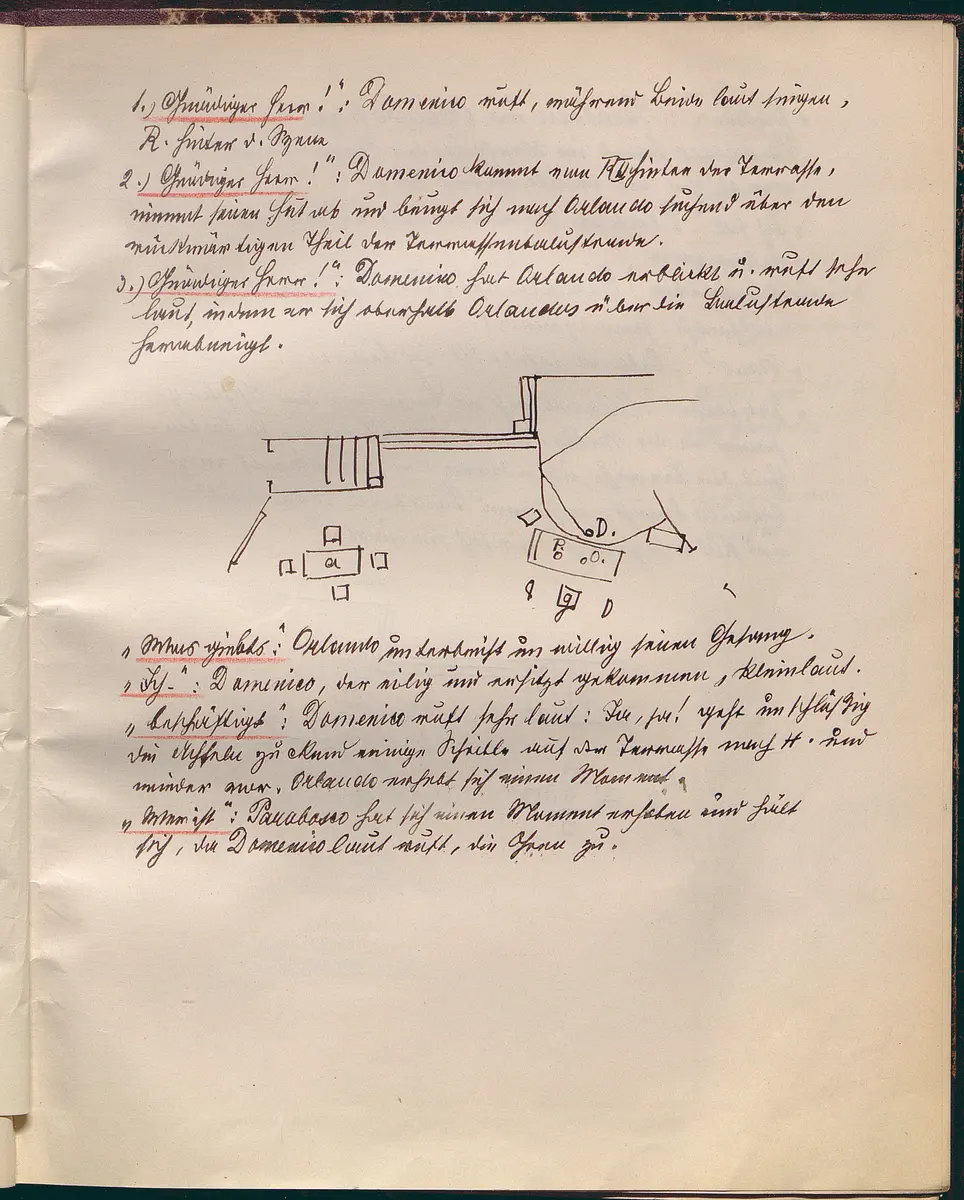 1.) Gnädiger Herr!": Domenico ruft, während Beide laut singen,
R. hinter d. Szene
2.) Gnädiger Herr!": Domenico kommt vom RIV hinter der Terrasse,
nimmt seinen Hut ab und beugt sich nach Orlando suchend über den
rückwärtigen Theil der Terrassenbalustrade.
3.) Gnädiger Herr!": Domenico hat Orlando erblickt u. ruft sehr
laut, indem er sich oberhalb Orlandos über die Balustrade
herabneigt.
D.
a
P.
O.
g
„Was giebts": Orlando unterbricht unwillig seinen Gesang.
„Ich-": Domenico, der eilig und erhitzt gekommen, kleinlaut.
„beschäftigt": Domenico ruft sehr laut: Ja, ja! geht unschlüssig
die Achseln zuckend einige Schritte auf der Terrasse nach H. und
wieder vor. Orlando erhebt sich einen Moment.
„Wer ist": Parabosco hat sich einen Moment erhoben und hält
sich, da Domenico laut ruft, die Ohren zu.